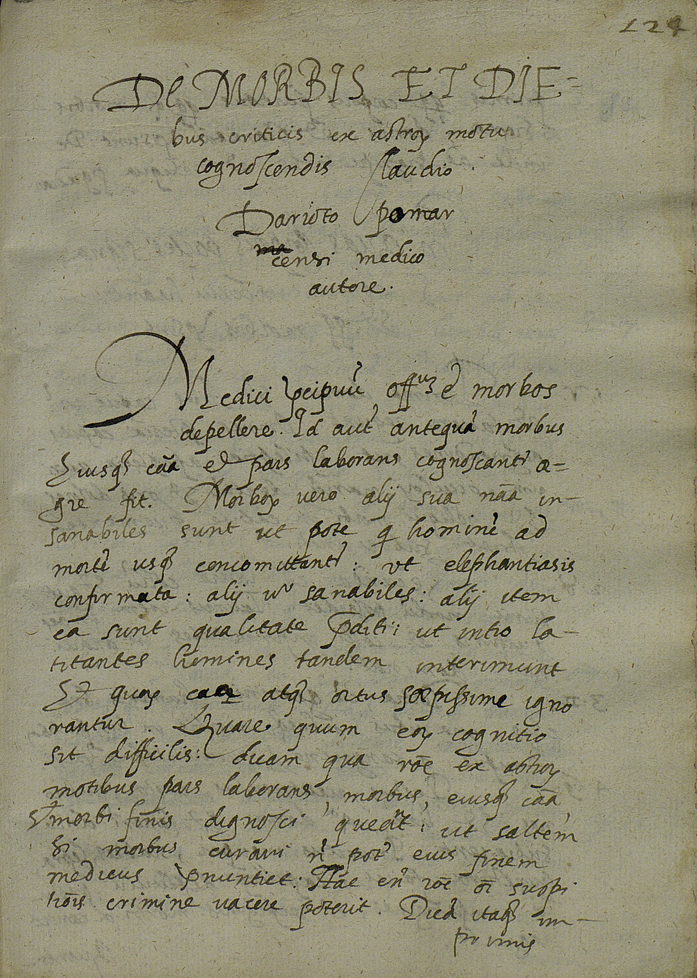 124
De MORBIS ET DIE=
bus criticis ex astroꝝ motu
cognoscendis Claudio
Darioto pomar
censi medico
autore.
Medici p̃cipuũ off^us ẽ morbos
depellere. Id aut̃ antequã morbus
Eiusqꝫ cãa et pars laborans cognoscantr̃ æ=
gre fit. Morboꝝ vero alij sua nãa in-
sanabiles sunt ut pote q̃ hominẽ ad
mortẽ usqꝫ concomittantr̃: vt elephantiasis
confirmata: alij v^o sanabiles: alij item
ea sunt qualitate p̃diti: ut intro la-
titantes homines tandem interimunt
Et quoꝝ atqꝫ ortus sæpissime igno
rantur. Quare quum eoꝝ cognitio
sit difficilis: dicam qua rõe ex astroꝝ
motibus pars laborans, morbus, eiusqꝫ cãa
Et morbi finis dignosci queãt: ut saltem
si morbus curari ñ pot̃ eius finem
medicus p̃nuntiet: Hac eñ rõe oĩ suspi
tiõis crimine vacere poterit. Dicã itaqꝫ im-
primis